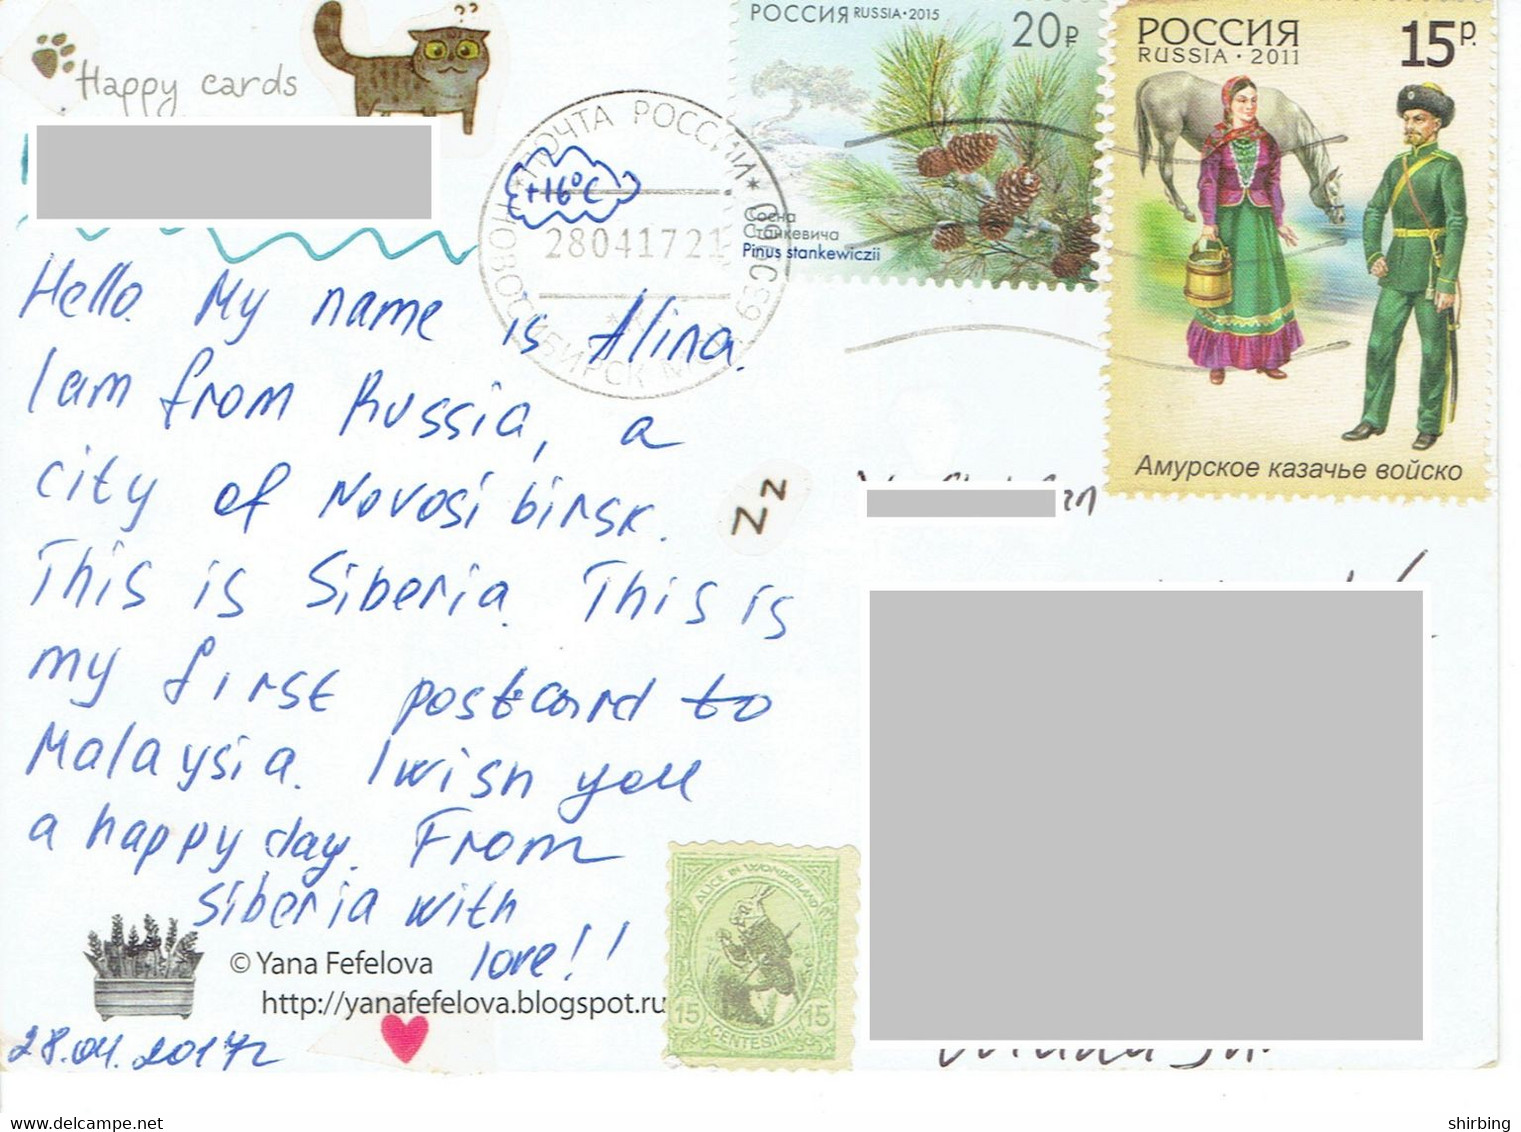 ??
Happy cards
РОССИЯ RUSSIA · 2015
20₽
Сосна
Станкевича
Pinus stankewiczii
РОССИЯ
RUSSIA · 2011
15р.
Амурское казачье войско
ПОЧТА РОССИИ
НОВОСИБИРСК
2804172
+16°C
Hello. My name is Alina.
I am from Russia, a
city of Novosibirsk.
This is Siberia. This is
my first postcard to
Malaysia. I wish you
a happy day. From
Siberia with
love!!
Zz
© Yana Fefelova
http://yanafefelova.blogspot.ru
28.04.2017г
ALICE IN WONDERLAND
15
15
CENTESIMI